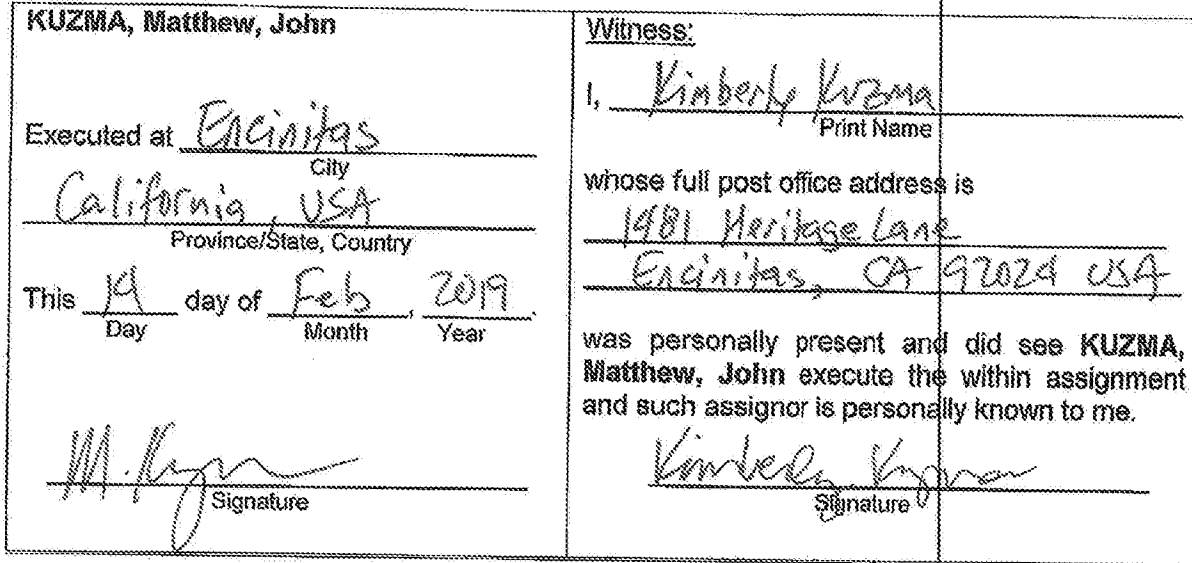 KUZMA, Matthew, John
Executed at Encinitas
City
California, USA
Province/State, Country
This 19 day of Feb, 2019.
Day Month Year
M. Kuzma
Signature
Witness:
I, Kimberly Kuzma
Print Name
whose full post office address is
1981 Heritage Lane
Encinitas, CA 92024 USA
was personally present and did see KUZMA,
Matthew, John execute the within assignment
and such assignor is personally known to me.
Kimberly Kuzma
Signature